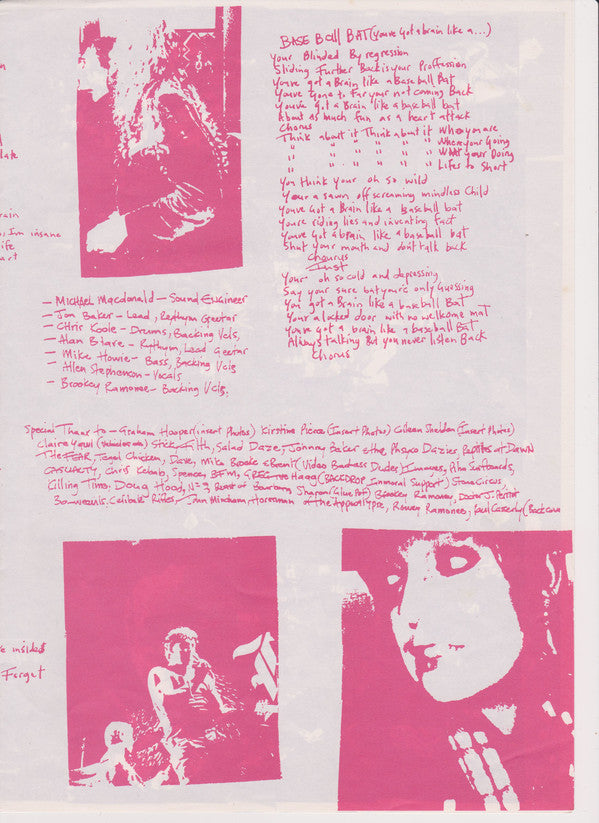 BASE BALL BAT (youve Got a brain like a...)
Your Blinded By regression
Sliding Further Back is your Proffession
Youve got a Brain like a Baseball Bat
Youve gone to Far your not coming Back
Youve got a Brain like a baseball bat
About as much fun as a heart attack
Chorus
Think about it Think about it Who you are
" " " " " " Where your Going
" " " " " " What your Doing
" " " " " " Lifes to Short
You think your oh so wild
Your a sawn off screaming mindless Child
Youve Got a Brain like a baseball bat
You're riding lies and inventing fact
Youve got a brain like a baseball bat
Shut your mouth and dont talk back
Chourus
Just
Your oh so cold and depressing
Say your sure bat your's only Guessing
You got a Brain like a baseball Bat
Your a locked door with no welkome mat
Youve got a brain like a baseball Bat
Always talking But you never listen Back
Chorus
- Michael Macdonald - Sound Engineer
- Jon Baker - Lead, Rythum Geetar
- Chris Koole - Drums, Backing Vcls,
- Alan Blare - Rythum, Lead Geetar
- Mike Howie - Bass, Backing Vcls
- Allen Stephenson - Vocals
- Brookey Ramonee - Backing Vcls.
late
rain
I'm insane
ife
art
Special Thanx to - Graham Hooper (insert Photos) Kirstine Pierce (Insert Photos) Coleen Sheldon (Insert Photos)
Claire Stick Filth, Salad Daze, Johnny Baker & the Phsyco Dazies, Reptiles at Dawn
The FEAR, Tengl Chicken, Dave, Mike Brooke & Brent (Video Badass Dudes) Immoves, Pihu Surfboards,
CASUALTY, Chris Kebab, Spencer, BFM, Haag (BACKDROP Immoral Support) Stone Circus,
Killing Time, Doug Hood, NZ Beast of Bourbon, Sharon (Glue Pot) Brookey Ramonee, Doctor J. Perrot
Bo-weevils, Celibate Rifles, Jan Mincham, Horseman of the Appocalypse, Rowey Ramonee, Paul Casserly (Back cover
e insided
Forget